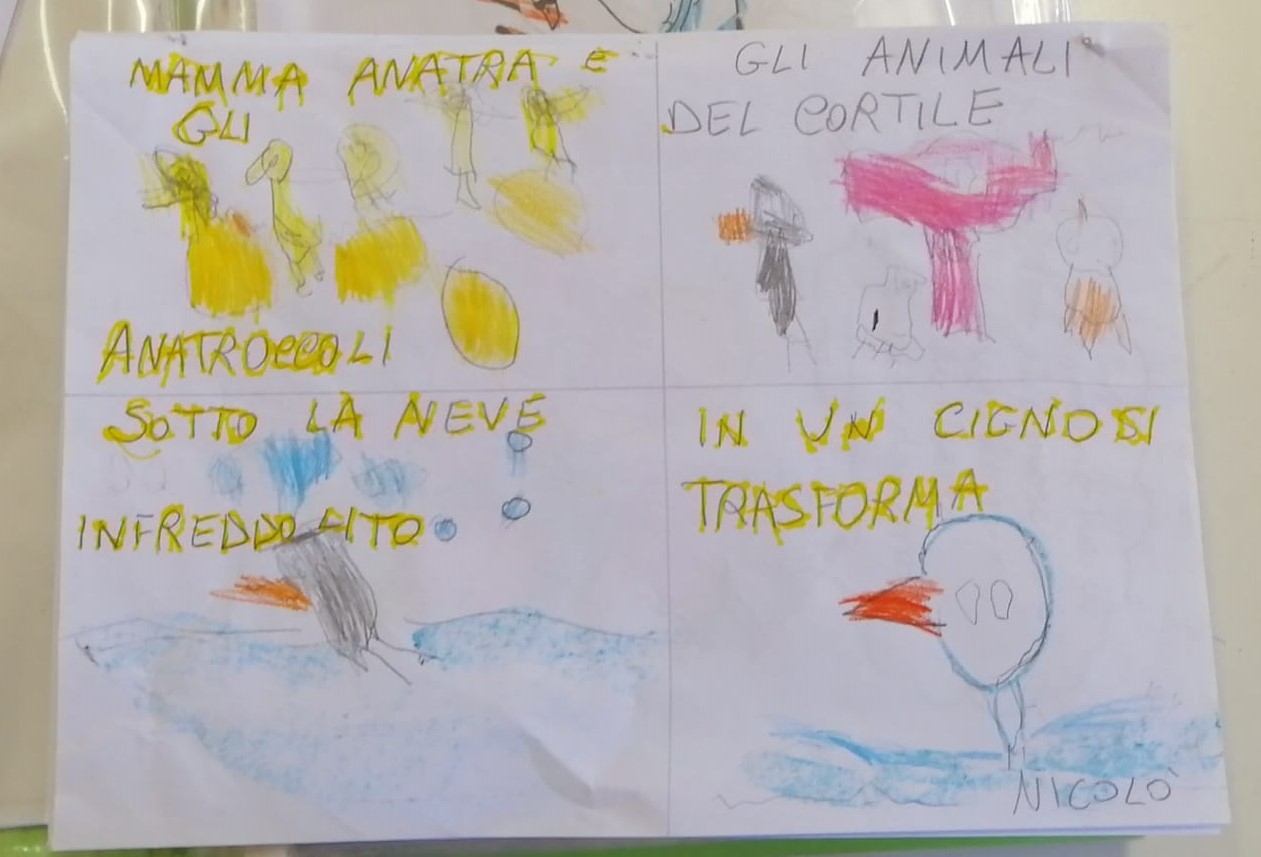 MAMMA ANATRA E
GLI
ANATROCCOLI
GLI ANIMALI
DEL CORTILE
SOTTO LA NEVE
INFREDDOLITO
IN UN CIGNO SI
TRASFORMA
NICOLÒ